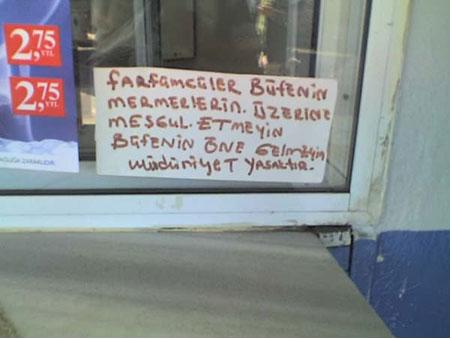 2,75 YTL
2,75 YTL
SAĞLIĞA ZARARLIDIR.
FARFÜMCÜLER BÜFENİN
MERMERLERİN. ÜZERİNE
MEŞGUL. ETMEYİN
BÜFENİN ÖNE GELMEYİN
MÜDÜRİYET YASAKTIR.